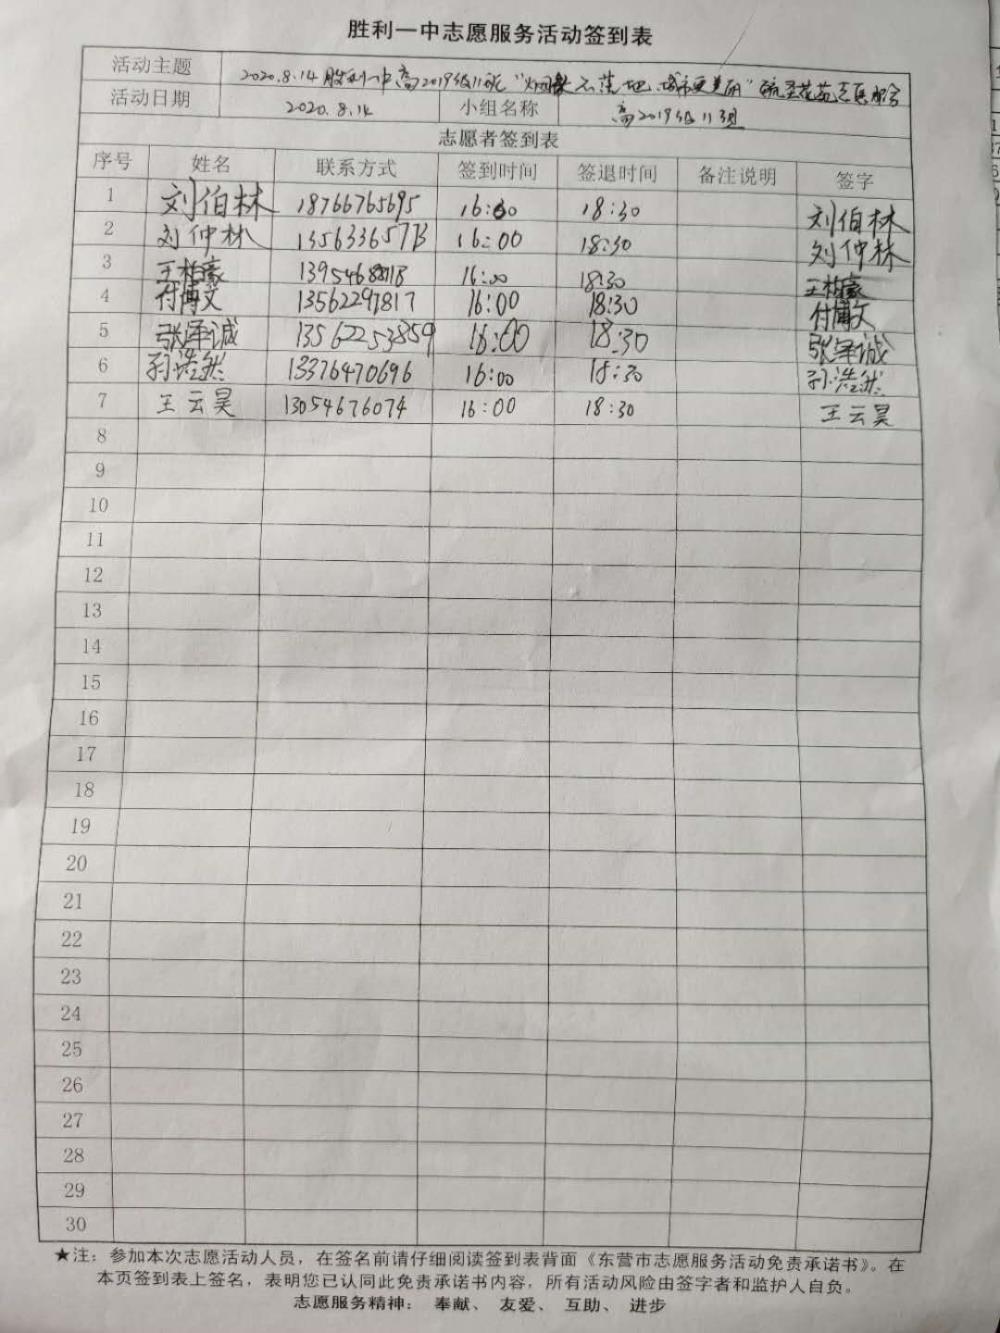 胜利一中志愿服务活动签到表
活动主题 2020.8.14 胜利一中高2019级11班“烟头不落地,城市更美丽” 志愿服务
活动日期 2020.8.14 小组名称 高2019级11组
志愿者签到表
序号 姓名 联系方式 签到时间 签退时间 备注说明 签字
1 刘伯林 18766765695 16:00 18:30 刘伯林
2 刘仲林 16:00 18:30 刘仲林
3 王柏豪 16:00 18:30 王柏豪
4 付博文 13562291817 16:00 18:30 付博文
5 张泽诚 13562253859 16:00 18:30 张泽诚
6 孙浩然 13376470696 16:00 18:30 孙浩然
7 王云昊 13054676074 16:00 18:30 王云昊
8
9
10
11
12
13
14
15
16
17
18
19
20
21
22
23
24
25
26
27
28
29
30
★注：参加本次志愿活动人员，在签名前请仔细阅读签到表背面《东营市志愿服务活动免责承诺书》。在
本页签到表上签名，表明您已认同此免责承诺书内容，所有活动风险由签字者和监护人自负。
志愿服务精神： 奉献、 友爱、 互助、 进步